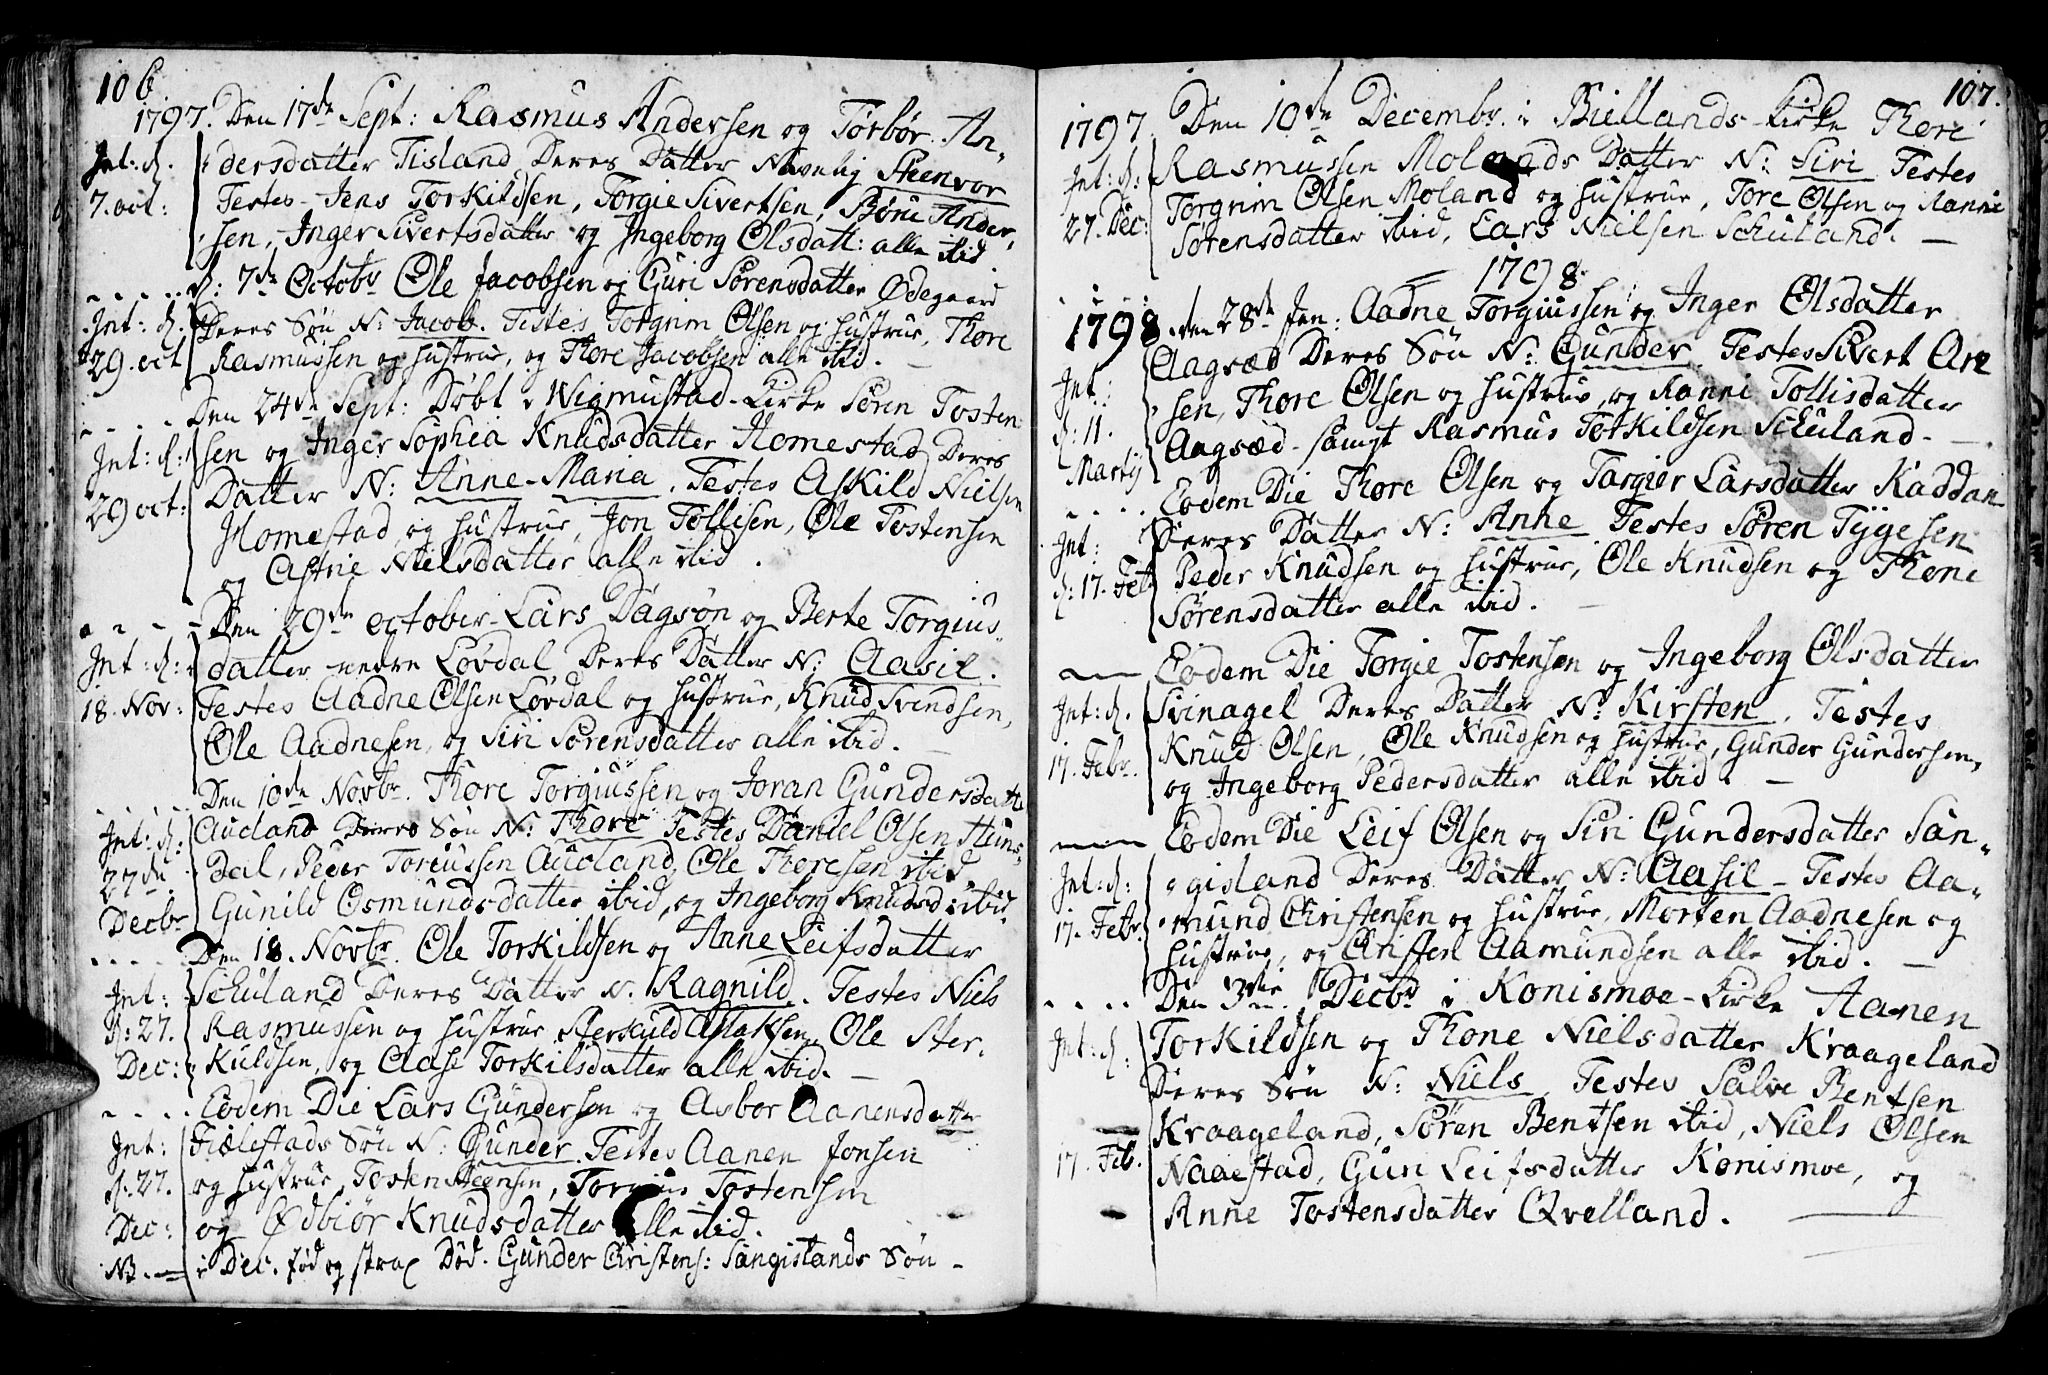 106
1797. Den 17de Sept: Rasmus Andersen og Torbør An-
Int: d. dersdatter Tisland Deres Datter Navnlig Steenvor
7. oct: Testes Jens Torkildsen, Torgie Sivertsen, Børu Ander-
sen, Inger Sivertsdatter og Ingeborg Olsdatt: alle ibid.
d: 7de Octobr Ole Jacobsen og Guri Sørensdatter Ødegaard
Int: d. Deres Søn N: Jacob. Testes Torgrim Olsen og Hustrue, Thore
29. oct Rasmussen og Hustrue, og Thore Jacobsen alle ibid.
Den 24de Sept: Døbt i Wigmustad-Kirke Søren Tosten-
Int: d: sen og Inger Sophia Knudsdatter Homestad Deres
29 oct: Datter N: Anne-Maria. Testes Askild Nielsen
Homestad og Hustrue, Jon Tollisen, Ole Tostensen
og Astrie Nielsdatter alle ibid.
Den 29de october Lars Dagsøn og Berte Torgius-
Int: d: datter nedre Løvdal Deres Datter N: Aasil.
18. Nov: Testes Aadne Olsen Løvdal og Hustrue, Knud Svendsen,
Ole Aadnesen, og Siri Sørensdatter alle ibid.
Den 10de Novbr. Thore Torgiussen og Joran Gundersdatte
Int: d: Auoland Deres Søn N: Thore Testes Daniel Olsen Huns-
27de dal, Peder Toreussen Auoland, Ole Thoresen ibid
Decbr Gunild Osmundsdatter ibid, og Ingeborg Knudsd: ibid.
Den 18. Novbr. Ole Torkildsen og Anne Leifsdatter
Int: Schuland Deres Datter N. Ragnild. Testes Niels
d: 27. Rasmussen og Hustrue, Sterkuld Aslaksen, Ole Ster-
Dec: kuldsen, og Aase Torkilsdatter alle ibid.
Eodem Die Lars Gundersen og Asbor Aanensdatter
Int: Fiælestads Søn N: Gunder Testes Aanen Jonsen
d: 27. og Hustrue, Tosten Steensen, Torgius Tostensen
Dec: og Ødbiør Knudsdatter alle ibid.
NB. i Dec. fød og strax Død. Gunder Christens: Sangislands Søn
107.
1797 Den 10de Decembr. i Biellands-Kirke Thore
Int: d: Rasmussen Molands Datter N: Siri Testes
27. Dec: Torgrim Olsen Moland og Hustrue, Tore Olsen og Ranni
Sørensdatter ibid, Lars Nielsen Schuland.
1798
1798. den 28de Jan: Aadne Torgiussen og Inger Olsdatter
Aagsæd Deres Søn N: Gunder. Testes Sivert Arn
Int: sen, Thore Olsen og Hustrue, og Ranni Tollisdatter
d: 11. Aagsæd samt Rasmus Torkildsen Schuland.
Martij Eodem Die Thore Olsen og Targier Larsdatter Kaddan
Int: Deres Datter N: Anne Testes Søren Tygesen
d: 17. Feb Peder Knudsen og Hustrue, Ole Knudsen og Thone
Sørensdatter alle ibid.
Eodem Die Torgie Tostensen og Ingeborg Olsdatter
Int: d. Svinagel Deres Datter N: Kirsten. Testes
17. Febr. Knud Olsen, Ole Knudsen og Hustrue, Gunder Gundersen,
og Ingeborg Pedersdatter alle ibid.
Eodem Die Leif Olsen og Siri Gundersdatter San-
Int: d: gisland Deres Datter N: Aasil Testes Aa-
17. Febr. mund Christensen og Hustrue, Morten Aadnesen og
Hustrue, og Christen Aamundsen alle ibid.
Den 3die Decbr i Konismoe-Kirke Aanen
Int: d: Torkildsen og Thone Nielsdatter Kraageland
Deres Søn N: Niels Testes Salve Bentsen
Kraageland, Søren Bentsen ibid, Niels Olsen
17. Feb. Naaestad, Guri Leifsdatter Konismoe, og
Anne Tostensdatter Qvelland.